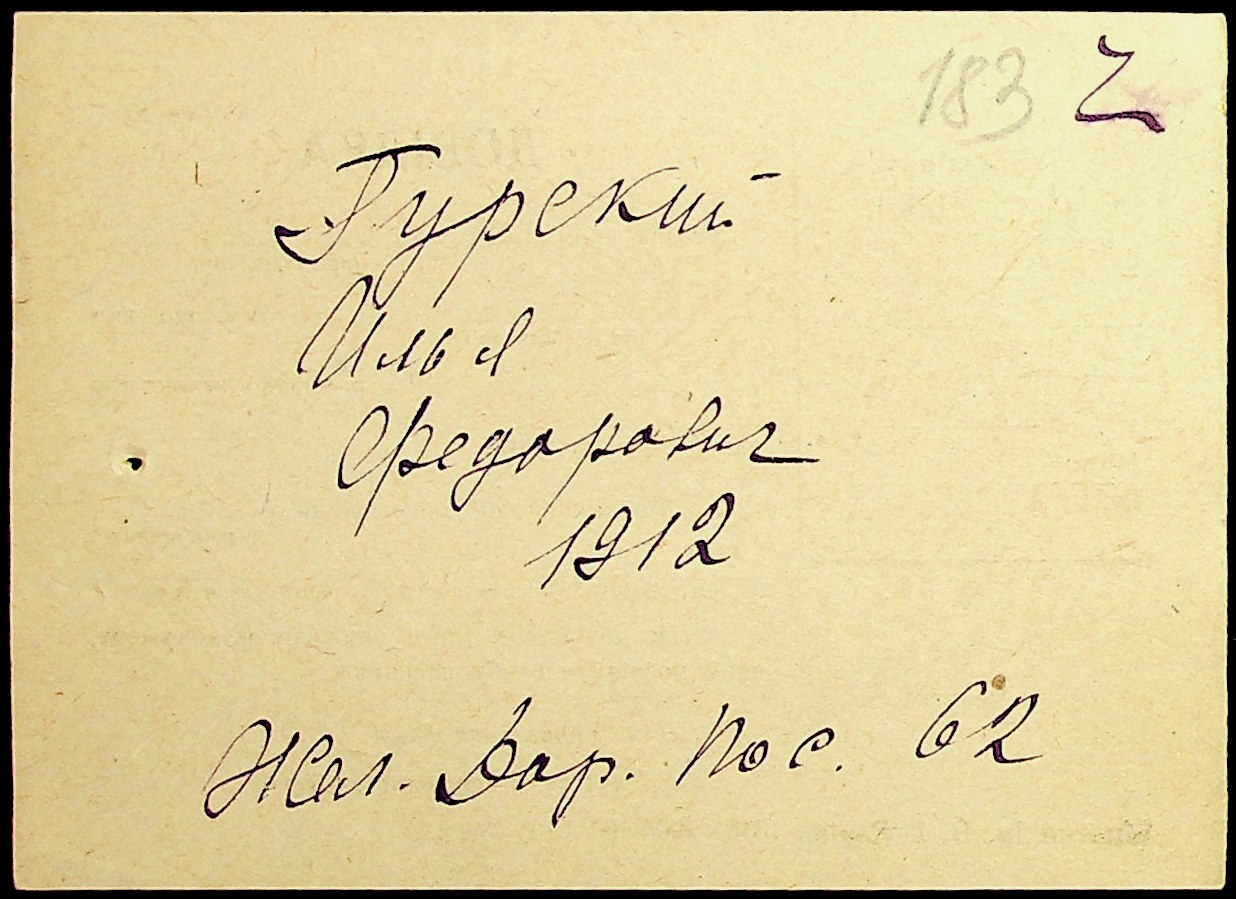 183 г
Гурский
Илья
Федорович
1912
Жел. Дор. Пос. 62